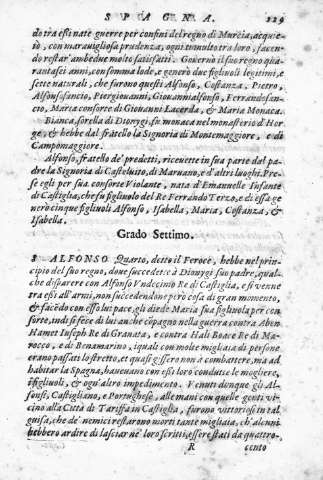 SPAGNA. 229
do tra essi nate guerre per confini del regno di Murcia, acquie
tò, con marauigliosa prudenza, ogni tumulto tra loro, facen
do restar' ambedue molto satisfatti. Gouernò il suo regno qua-
rantasei anni, con somma lode, e generò due figliuoli legitimi, e
sette naturali, che furono questi Alfonso, Costanza, Pietro,
Alfonsosancio, Piergiouanni, Giouannialfonso, Ferrandosan-
cio, Maria consorte di Giouanni Lacerda, & Maria Monaca.
Bianca, sorella di Dionygi, fu monaca nel monasterio d'Hor
ge, & hebbe dal fratello la Signoria di Montemaggiore, e di
Campomaggiore.
Alfonso, fratello de' predetti, riceuette in sua parte dal pa-
dre la Signoria di Casteluito, di Maruano, e d'altri luoghi. Pre
se egli per sua consorte Violante, nata d'Emanuelle Infante
di Castiglia, che fu figliuolo del Re Ferrando Terzo, e di essa ge
nerò cinque figliuoli Alfonso, Isabella, Maria, Costanza, &
Isabella.
Grado Settimo.
8 ALFONSO Quarto, detto il Feroce, hebbe nel prin-
cipio del suo regno, doue succedette à Dionygi suo padre, qual-
che disparere con Alfonso Vndecimo Re di Castiglia, e si venne
tra essi all'armi, non succedendone però cosa di gran momento,
& facēdo con esso lui pace, gli diede Maria sua figliuola per con
sorte, indi si fece di lui anche cōpagno nella guerra contra Aben
Hamet Iuseph Re di Granata, e contra Hali Boace Re di Ma-
rocco, e di Benamarino, iquali con molte migliaia di persone
erano passati lo stretto, et quasi gissero non à combattere, ma ad
habitar la Spagna, haueuano con essi loro condutte le mogliere,
i figliuoli, & ogn' altro impedimento. Venuti dunque gli Al-
fonsi, Castigliano, e Portughese, alle mani con quelle genti vi-
cino alla Città di Tariffa in Castiglia, furono vittoriosi in tal
guisa, che de' nemici restarono morti tante migliaia, ch'alcuni
hebbero ardire di lasciar ne' loro scritti, essere stati da quattro-
R cento